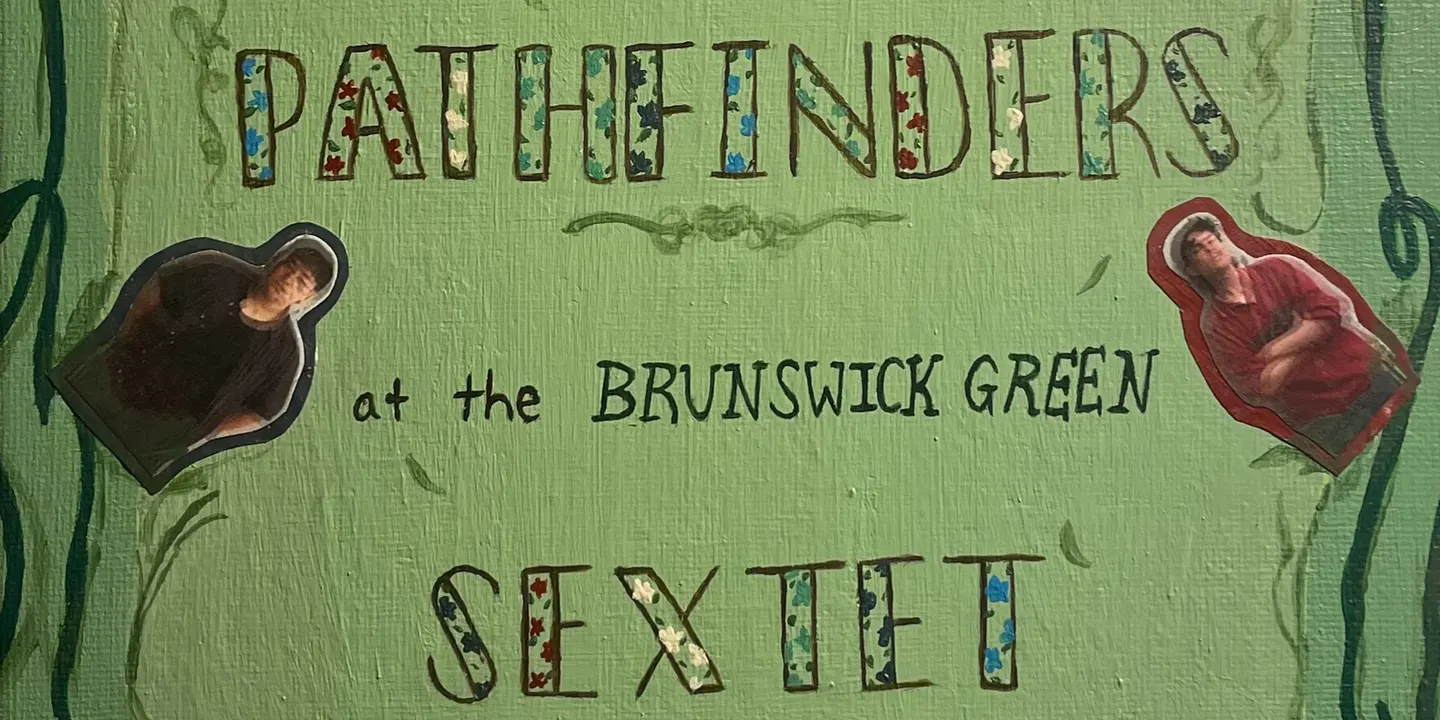 PATHFINDERS
at the BRUNSWICK GREEN
SEXTET